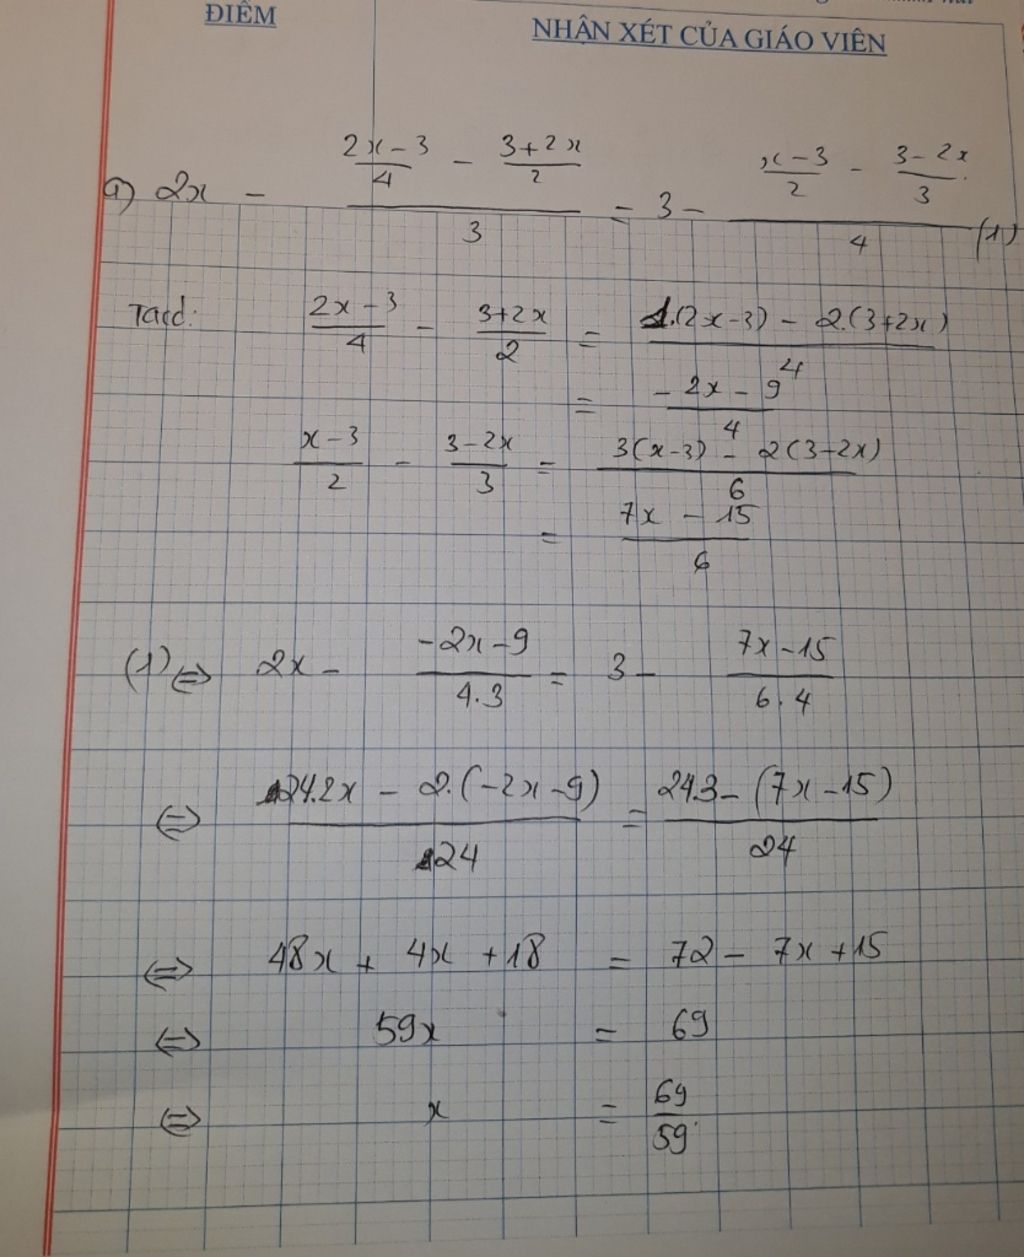 ĐIỂM
NHẬN XÉT CỦA GIÁO VIÊN
a) 2x - ((2x-3)/4 - (3+2x)/2)/3 = 3 - ((x-3)/2 - (3-2x)/3)/4 (1)
Ta có: (2x-3)/4 - (3+2x)/2 = (1.(2x-3) - 2.(3+2x))/4
= (-2x-9)/4
(x-3)/2 - (3-2x)/3 = (3(x-3) - 2(3-2x))/6
= (7x-15)/6
(1) ⇔ 2x - (-2x-9)/(4.3) = 3 - (7x-15)/(6.4)
⇔ (24.2x - 2.(-2x-9))/24 = (24.3 - (7x-15))/24
⇔ 48x + 4x + 18 = 72 - 7x + 15
⇔ 59x = 69
⇔ x = 69/59.